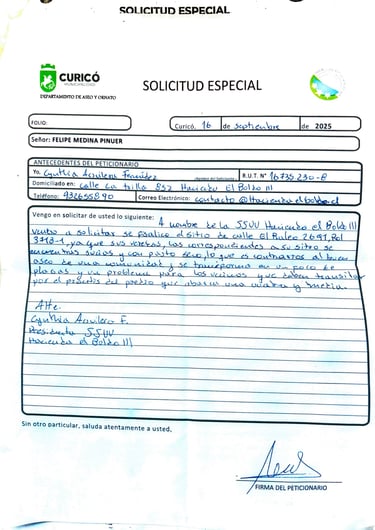 SOLICITUD ESPECIAL
CURICÓ
MUNICIPALIDAD
DEPARTAMENTO DE ASEO Y ORNATO
SOLICITUD ESPECIAL
FOLIO:
Curicó, 16 de septiembre de 2025
Señor: FELIPE MEDINA PINUER
ANTECEDENTES DEL PETICIONARIO
Yo, Cynthia Aguilera R.U.T. N° 16735230-8
Domiciliado en: calle La trilla 852 Hacienda El Boldo III
Teléfono: 932655890 Correo Electrónico: contacto@
Vengo en solicitar de usted lo siguiente: A nombre de la JJVV Hacienda el Boldo III
vengo a solicitar se fiscalice el sitio de calle El Ruleo 2691, Rol
3318-1, ya que sus veredas, las correspondientes a su sitio se
encuentran sucios y con pasto seco, lo que es contrario al buen
aseo de una comunidad y se transforma en un foco de
plagas y un problema para los vecinos que deben transitar
por el del predio que abarca una cuadra y media.
Atte.
Cynthia Aguilera F.
Presidenta JJVV
Hacienda el Boldo III
Sin otro particular, saluda atentamente a usted.
FIRMA DEL PETICIONARIO